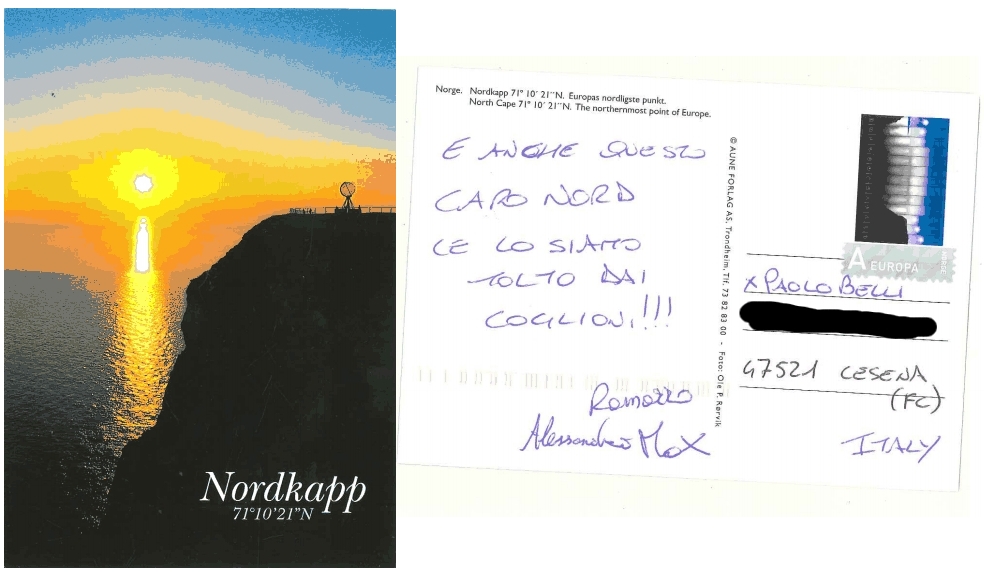 Nordkapp
71°10'21"N
Norge. Nordkapp 71° 10' 21''N. Europas nordligste punkt.
North Cape 71° 10' 21''N. The northernmost point of Europe.
E ANCHE QUESTO
CAPO NORD
CE LO SIAMO
TOLTO DAI
COGLIONI!!!
Romozzo
Alessandro Max
© AUNE FORLAG AS, Trondheim, Tlf. 73 82 83 00 - Foto: Ole P. Rørvik
A EUROPA
NORGE
x PAOLO BELLI
47521 CESENA
(FC)
ITALY